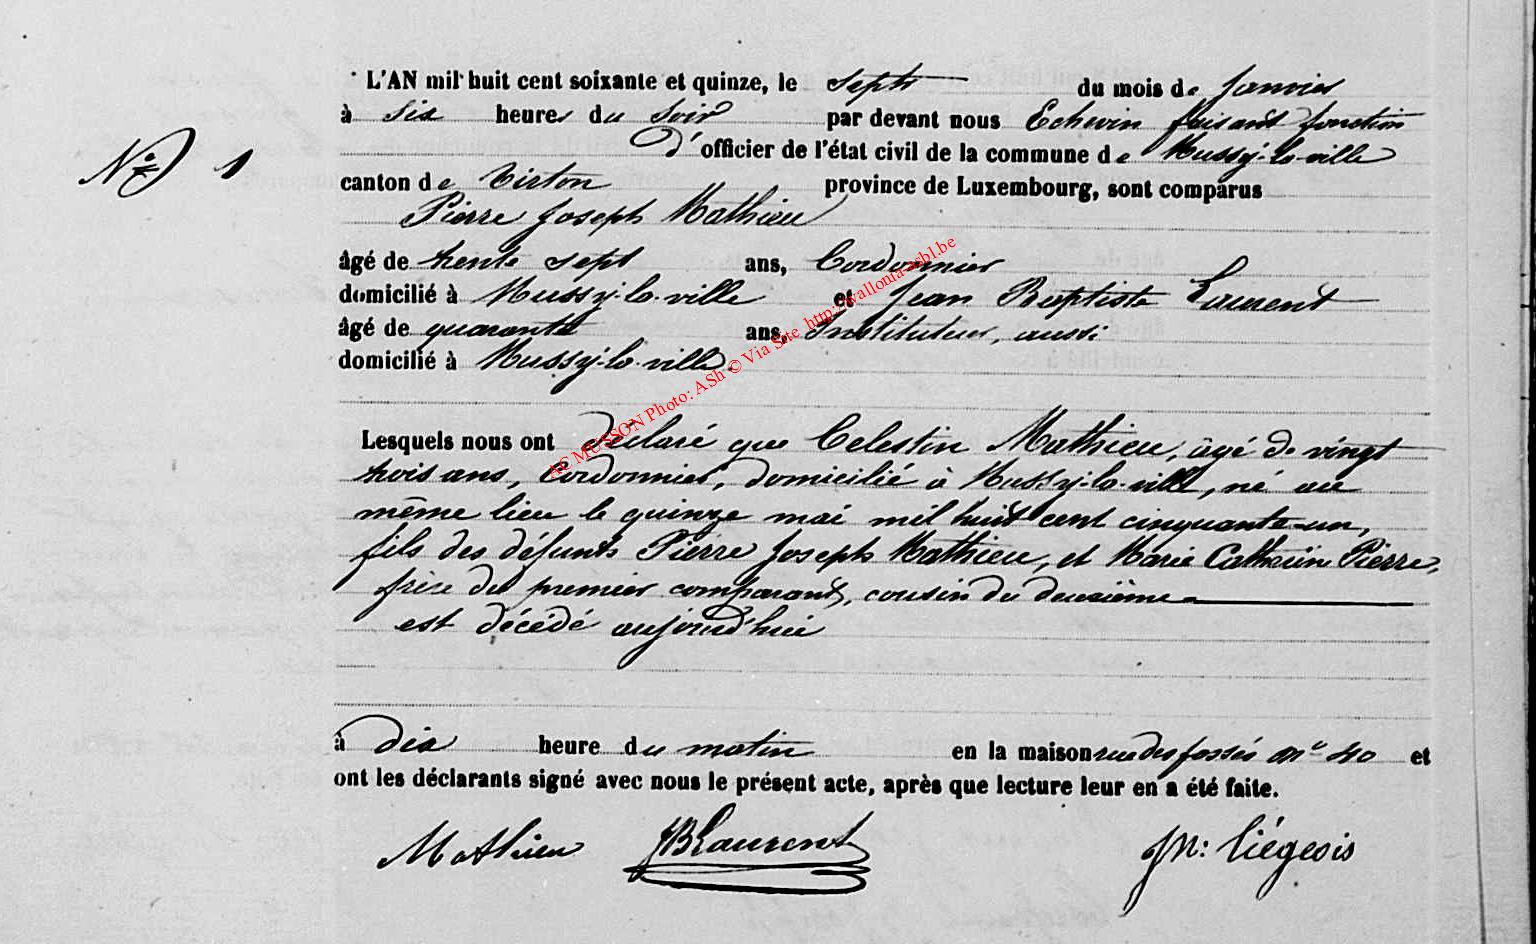 L'AN mil huit cent soixante et quinze, le sept du mois de Janvier
à six heures du soir par devant nous Echevin faisant fonction
N° 1
d'officier de l'état civil de la commune de Mussy-la-ville
canton de Virton province de Luxembourg, sont comparus
Pierre Joseph Mathieu
âgé de trente sept ans, Cordonnier
domicilié à Mussy-la-ville et Jean Baptiste Laurent
âgé de quarante ans, Instituteur, aussi
domicilié à Mussy-la-ville.
AC MUSSON Photo: ASh © Via Site http://wallonia-asbl.be
Lesquels nous ont déclaré que Celestin Mathieu, âgé de vingt
trois ans, Cordonnier, domicilié à Mussy-la-ville, né au
même lieu le quinze mai mil huit cent cinquante-un,
fils des défunts Pierre Joseph Mathieu, et Marie Catherine Pierre,
frère du premier comparant, cousin du deuxième
est décédé aujourd'hui
à dix heure du matin en la maison rue des fossés n° 40 et
ont les déclarants signé avec nous le présent acte, après que lecture leur en a été faite.
Mathieu JBLaurent Jn: Liégeois